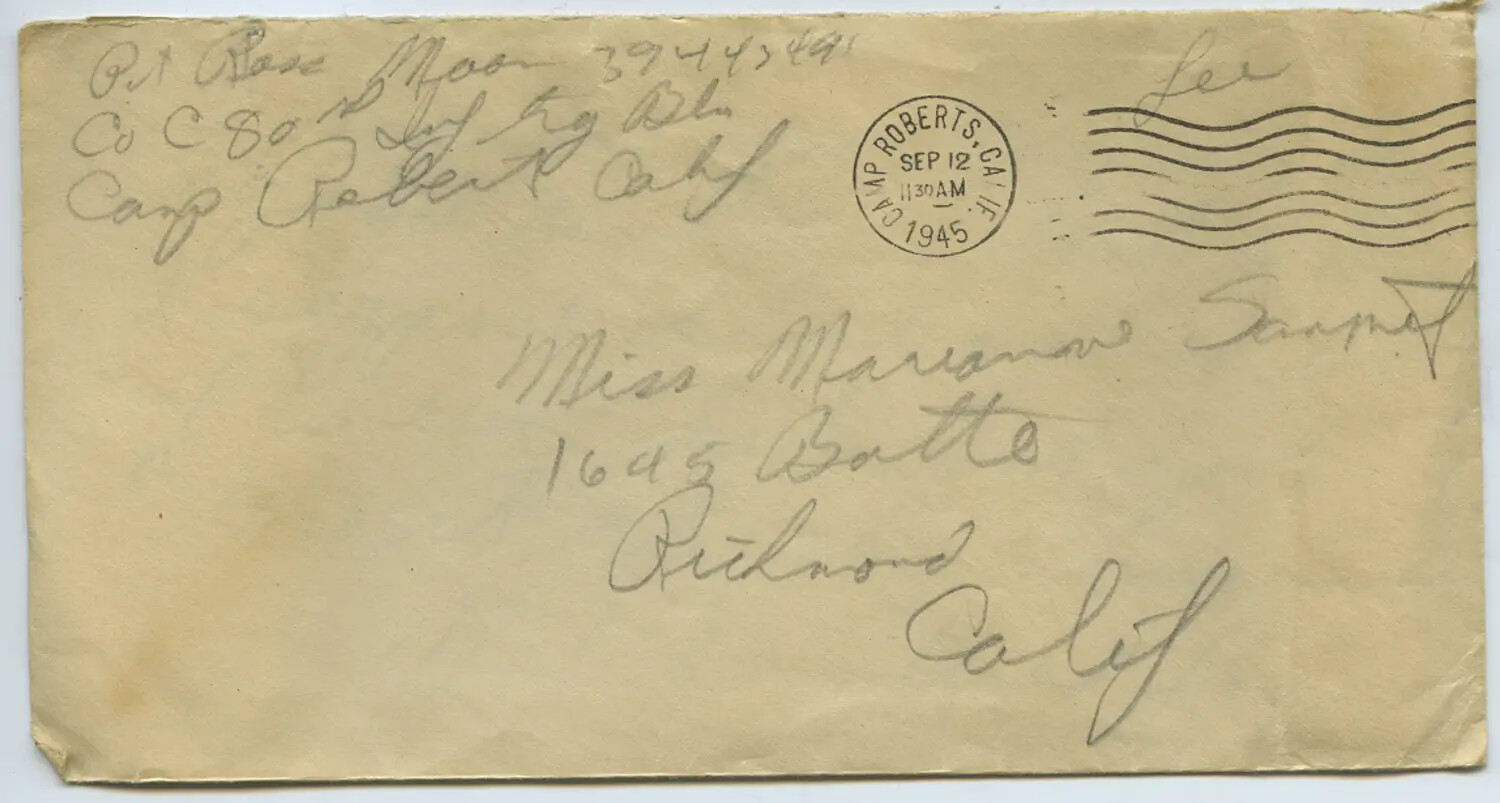 Pvt Ross Moon
Co C 80th Inf Trg Btn
Camp Robert Calif
Free
CAMP ROBERTS, CALIF.
SEP 12
11 30 AM
1945
Miss
1645 Butte
Richmond
Calif